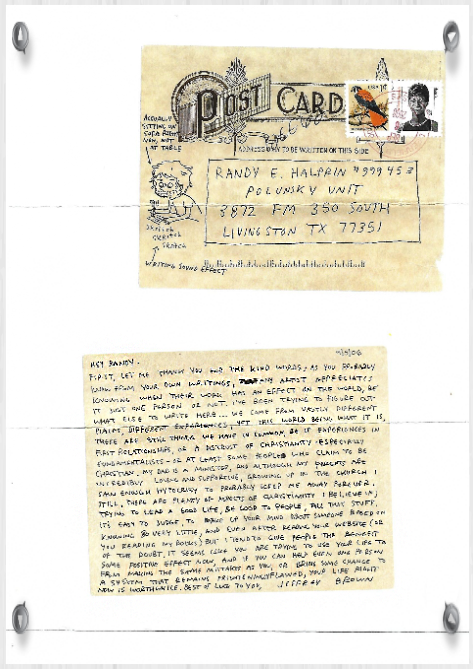 ACTUALLY
SITTING ON
SOFA RIGHT
NOW, NOT
AT TABLE
POST CARD
ADDRESS ONLY TO BE WRITTEN ON THIS SIDE
RANDY E. HALPRIN #999453
POLUNSKY UNIT
3872 FM 350 SOUTH
LIVINGSTON TX 77351
SCRATCH
WRITING SOUND EFFECT
HEY RANDY,
FIRST, LET ME THANK YOU FOR THE KIND WORDS; AS YOU PROBABLY
KNOW FROM YOUR OWN WRITINGS, ANY ARTIST APPRECIATES
KNOWING WHEN THEIR WORK HAS AN EFFECT ON THE WORLD, BE
IT JUST ONE PERSON OR NOT. I'VE BEEN TRYING TO FIGURE OUT
WHAT ELSE TO WRITE HERE... WE COME FROM VASTLY DIFFERENT
PLACES, DIFFERENT EXPERIENCES, YET THIS WORLD BEING WHAT IT IS,
THERE ARE STILL THINGS WE HAVE IN COMMON, BE IT EXPERIENCES IN
FIRST RELATIONSHIPS, OR A DISTRUST OF CHRISTIANITY - ESPECIALLY
FUNDAMENTALISTS - OR AT LEAST SOME PEOPLE WHO CLAIM TO BE
CHRISTIAN. MY DAD IS A MINISTER, AND ALTHOUGH MY PARENTS ARE
INCREDIBLY LOVING AND SUPPORTIVE, GROWING UP IN THE CHURCH I
SAW ENOUGH HYPOCRISY TO PROBABLY KEEP ME AWAY FOREVER.
STILL, THERE ARE PLENTY OF ASPECTS OF CHRISTIANITY I BELIEVE IN;
TRYING TO LEAD A GOOD LIFE, BE GOOD TO PEOPLE, ALL THIS STUFF.
IT'S EASY TO JUDGE, TO MAKE UP YOUR MIND ABOUT SOMEONE BASED ON
KNOWING SO VERY LITTLE, AND EVEN AFTER READING YOUR WEBSITE (OR
YOU READING MY BOOKS) BUT I TEND TO GIVE PEOPLE THE BENEFIT
OF THE DOUBT, IT SEEMS LIKE YOU ARE TRYING TO USE YOUR LIFE TO
SOME POSITIVE EFFECT NOW, AND IF YOU CAN HELP EVEN ONE PERSON
FROM MAKING THE SAME MISTAKES AS YOU, OR BRING SOME CHANGE TO
A SYSTEM THAT REMAINS FLAWED, YOUR LIFE RIGHT
NOW IS WORTHWHILE. BEST OF LUCK TO YOU, JEFFREY BROWN